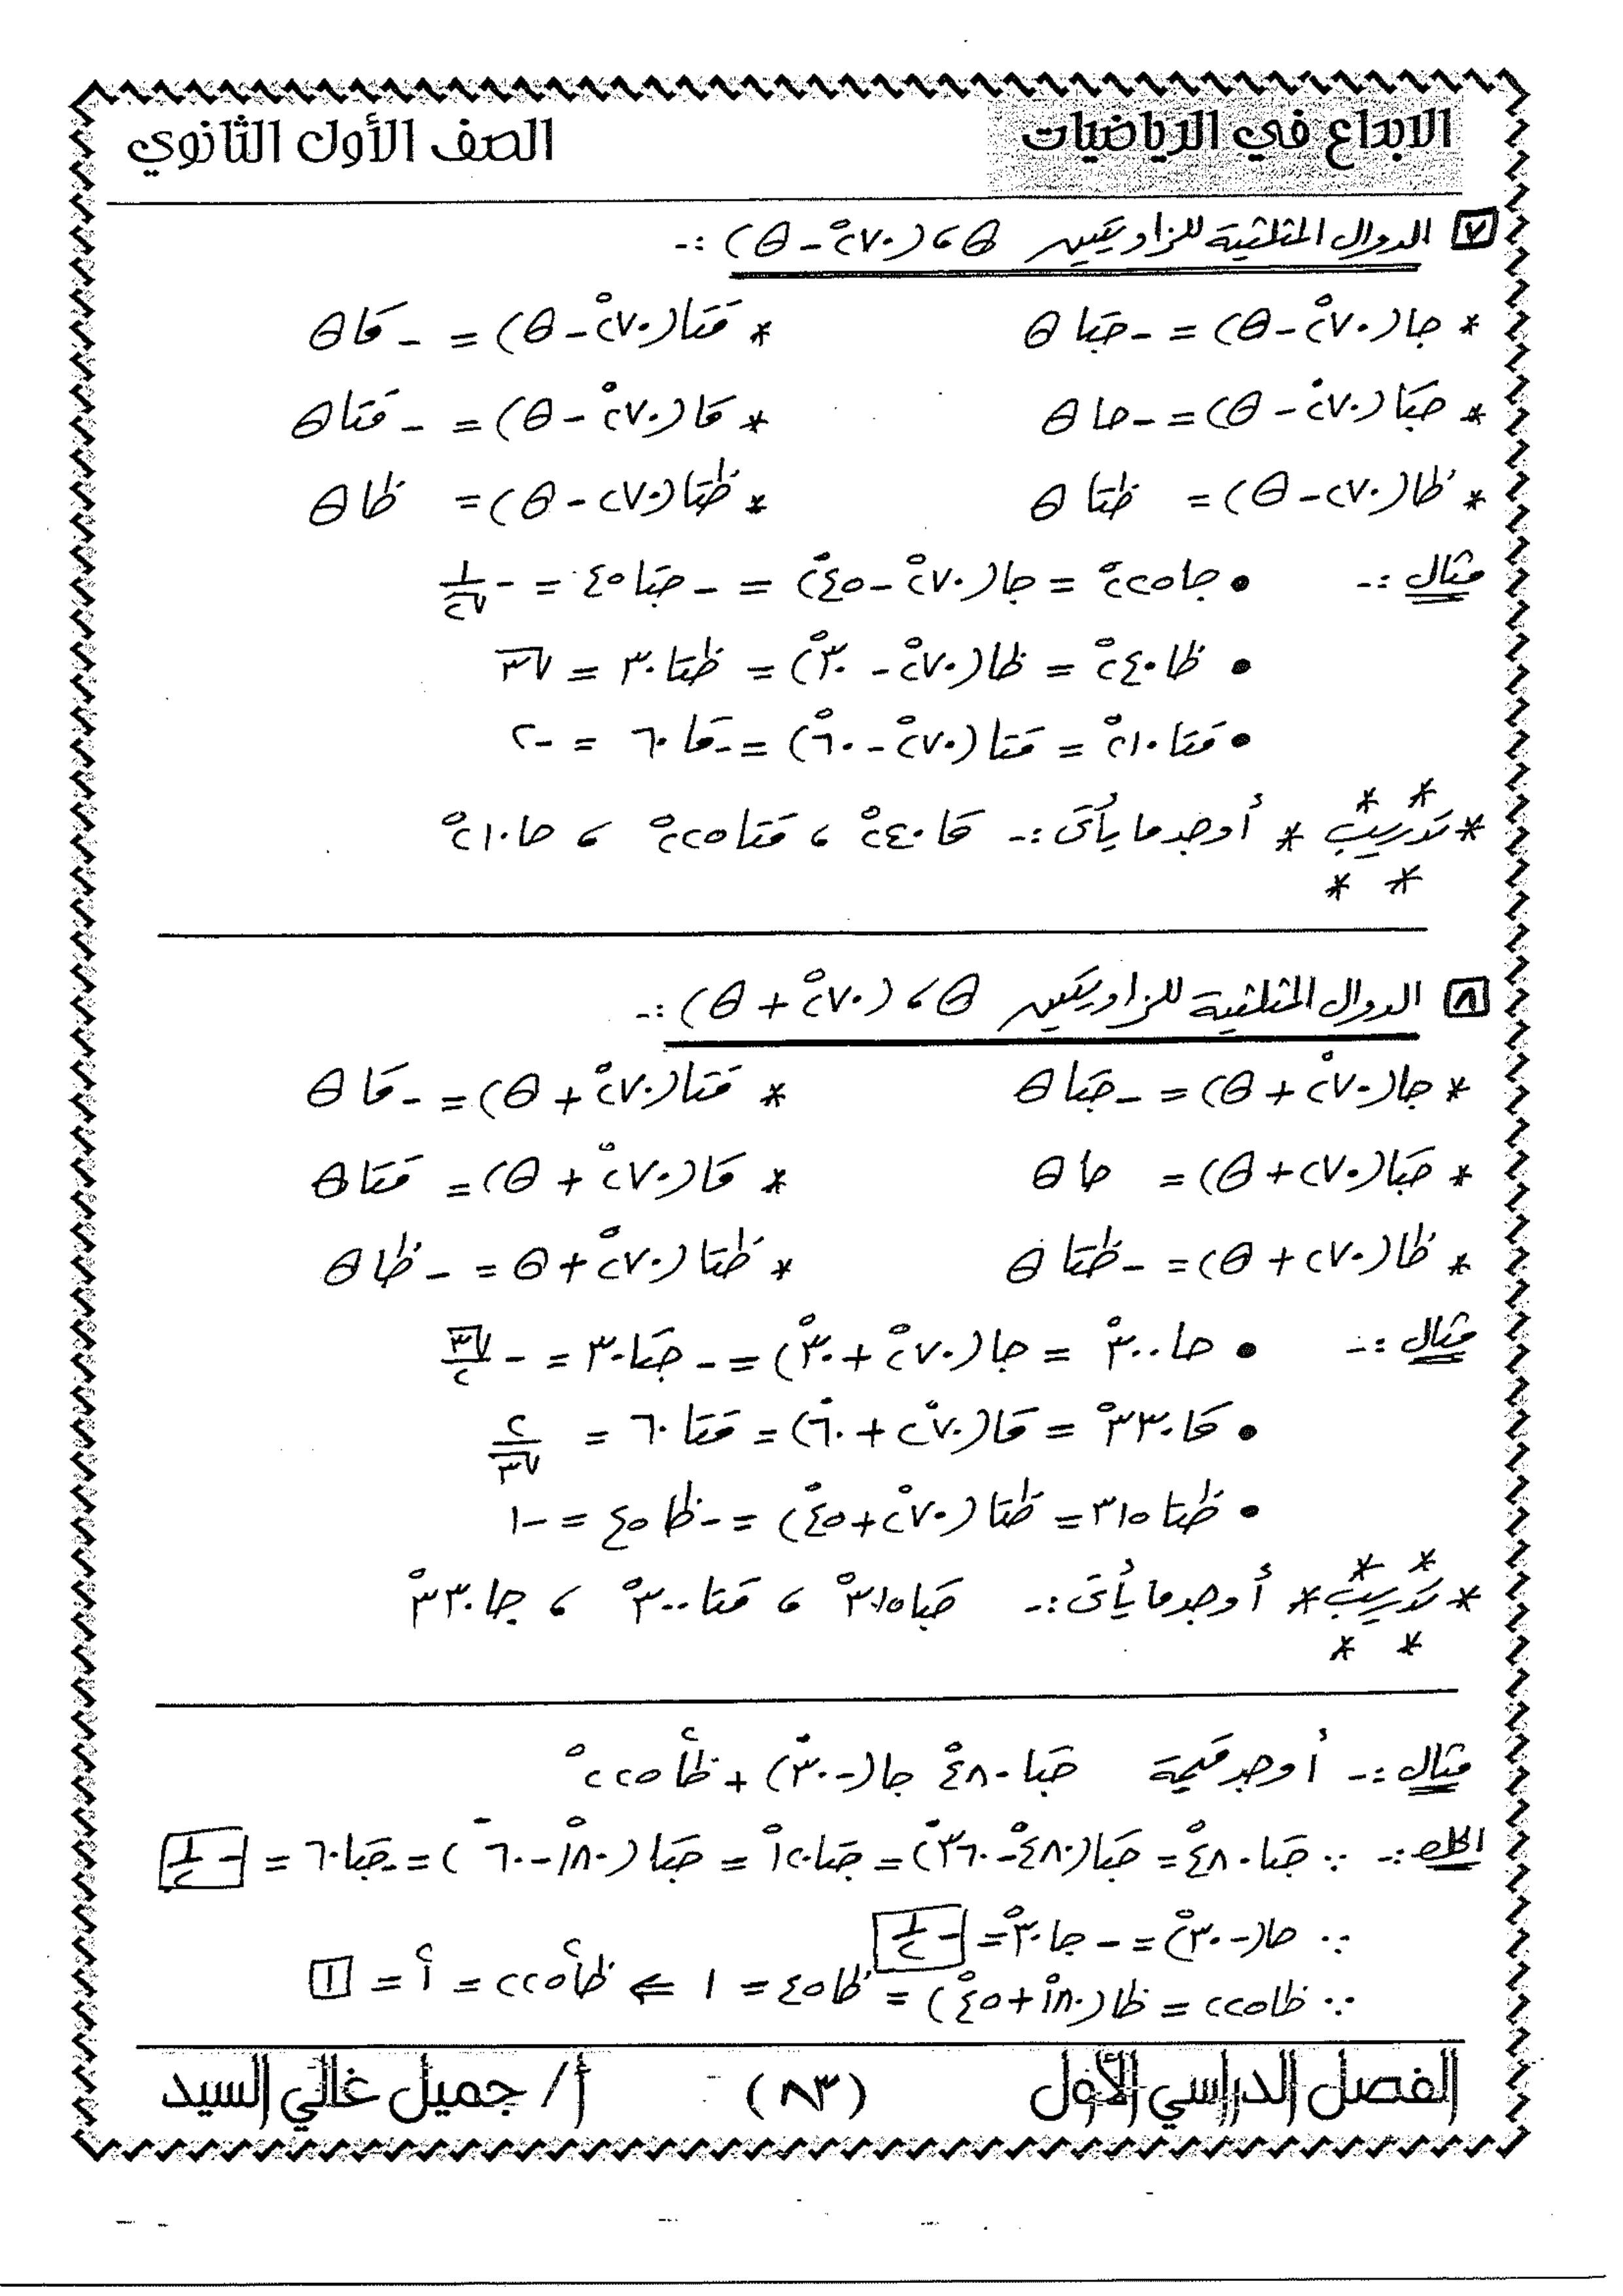 الابداع في الرياضيات الصف الأول الثانوي
٧ الدوال المثلثية للزاويتين θ ، (٢٧٠° - θ) :-
* جا(٢٧٠° - θ) = - جتا θ * قتا(٢٧٠° - θ) = - قا θ
* جتا(٢٧٠° - θ) = - جا θ * قا(٢٧٠° - θ) = - قتا θ
* ظا(٢٧٠ - θ) = ظتا θ * ظتا(٢٧٠ - θ) = ظا θ
مثال :- • جا ٢٢٥° = جا(٢٧٠° - ٤٥°) = - جتا ٤٥ = - ١/√٢
• ظا ٢٤٠° = ظا(٢٧٠° - ٣٠°) = ظتا ٣٠ = √٣
• قتا ٢١٠° = قتا(٢٧٠° - ٦٠°) = - قا ٦٠ = - ٢
* تدريب * أوجد ما يأتى :- قا ٢٤٠° ، قتا ٢٢٥° ، جا ٢١٠°
٨ الدوال المثلثية للزاويتين θ ، (٢٧٠° + θ) :-
* جا(٢٧٠° + θ) = - جتا θ * قتا(٢٧٠° + θ) = - قا θ
* جتا(٢٧٠ + θ) = جا θ * قا(٢٧٠° + θ) = قتا θ
* ظا(٢٧٠ + θ) = - ظتا θ * ظتا(٢٧٠° + θ = - ظا θ
مثال :- • جا ٣٠٠° = جا(٢٧٠° + ٣٠°) = - جتا ٣٠ = - √٣/٢
• قا ٣٣٠° = قا(٢٧٠° + ٦٠°) = قتا ٦٠ = ٢/√٣
• ظتا ٣١٥ = ظتا(٢٧٠° + ٤٥°) = - ظا ٤٥ = - ١
* تدريب * أوجد ما يأتى :- جتا ٣١٥° ، قتا ٣٠٠° ، جا ٣٣٠°
مثال :- أوجد قيمة جتا ٤٨٠° جا(-٣٠°) + ظا٢ ٢٢٥°
الحل :- ∵ جتا ٤٨٠° = جتا(٤٨٠° - ٣٦٠°) = جتا ١٢٠° = جتا(١٨٠° - ٦٠°) = - جتا ٦٠ = - ١/٢
∵ جا(-٣٠°) = - جا ٣٠° = - ١/٢
∵ ظا ٢٢٥ = ظا(١٨٠° + ٤٥°) = ظا ٤٥ = ١ ⇐ ظا٢ ٢٢٥ = ١٢ = ١
الفصل الدراسي الأول (٨٣) أ/ جميل غالي السيد